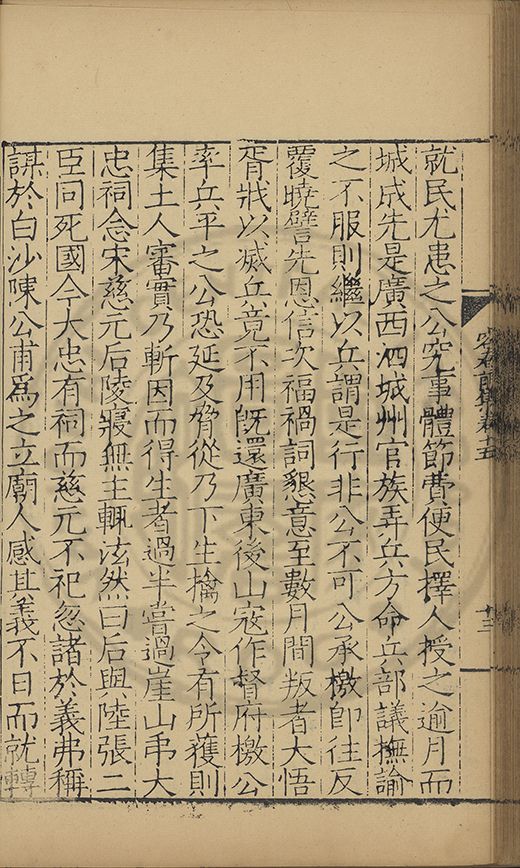 就民尤患之公究事體節費便民擇人授之逾月而
城成先是廣西泗城州官族弄兵方命兵部議撫諭
之不服則繼以兵謂是行非公不可公承檄即往反
覆曉譬先恩信次福禍詞懇意至數月間叛者大悟
胥戕以滅兵竟不用旣還廣東後山寇作督府檄公
率兵平之公恐延及脅從乃下生擒之令有所獲則
集土人審實乃斬因而得生者過半嘗過崖山弔大
忠祠念宋慈元后陵寢無主輒泫然曰后與陸張二
臣同死國今大忠有祠而慈元不祀忽諸於義弗稱
謀於白沙陳公甫爲之立廟人感其義不日而就轉
十五
十三